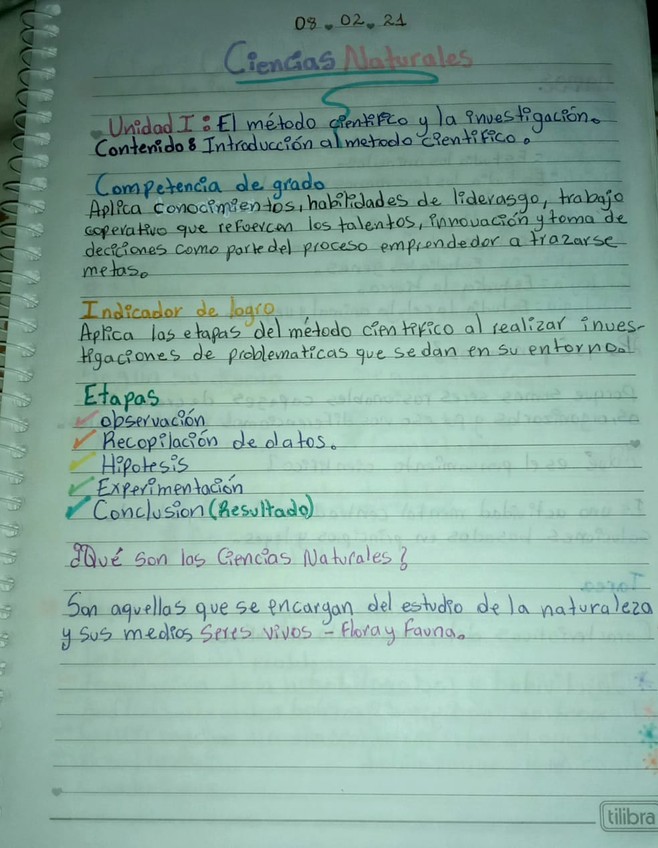 08.02.21
Ciencias Naturales
Unidad I: El método científico y la investigación.
Contenido: Introducción al metodo científico.
Competencia de grado
Aplica conocimientos, habilidades de liderasgo, trabajo
coperativo que refuercen los talentos, innovación y toma de
deciciones como parte del proceso emprendedor a trazarse
metas.
Indicador de logro
Aplica las etapas del método científico al realizar inves-
tigaciones de problematicas que se dan en su entorno.
Etapas
✓ observación
✓ Recopilación de datos.
✓ Hipotesis
✓ Experimentación
✓ Conclusion (Resultado)
¿Qué son las Ciencias Naturales?
Son aquellas que se encargan del estudio de la naturaleza
y sus medios seres vivos - Flora y Fauna.
tilibra